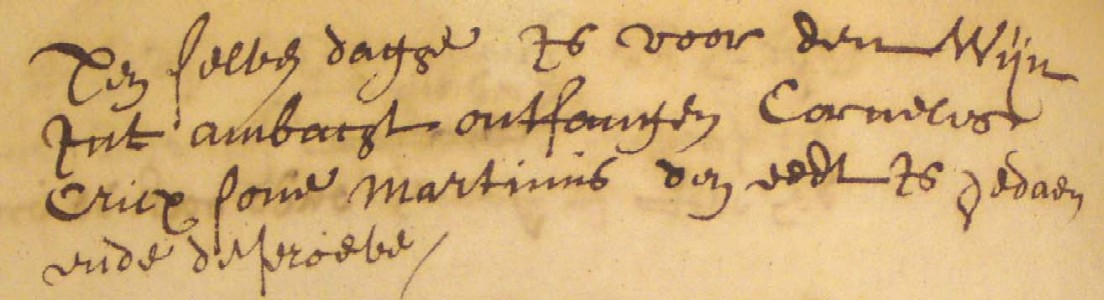 Den selven dagge is voor den Wijn
int ambacht ontfangen Cornelis
Ericx sone Martinus den eedt is gedaen
ende de proeve /